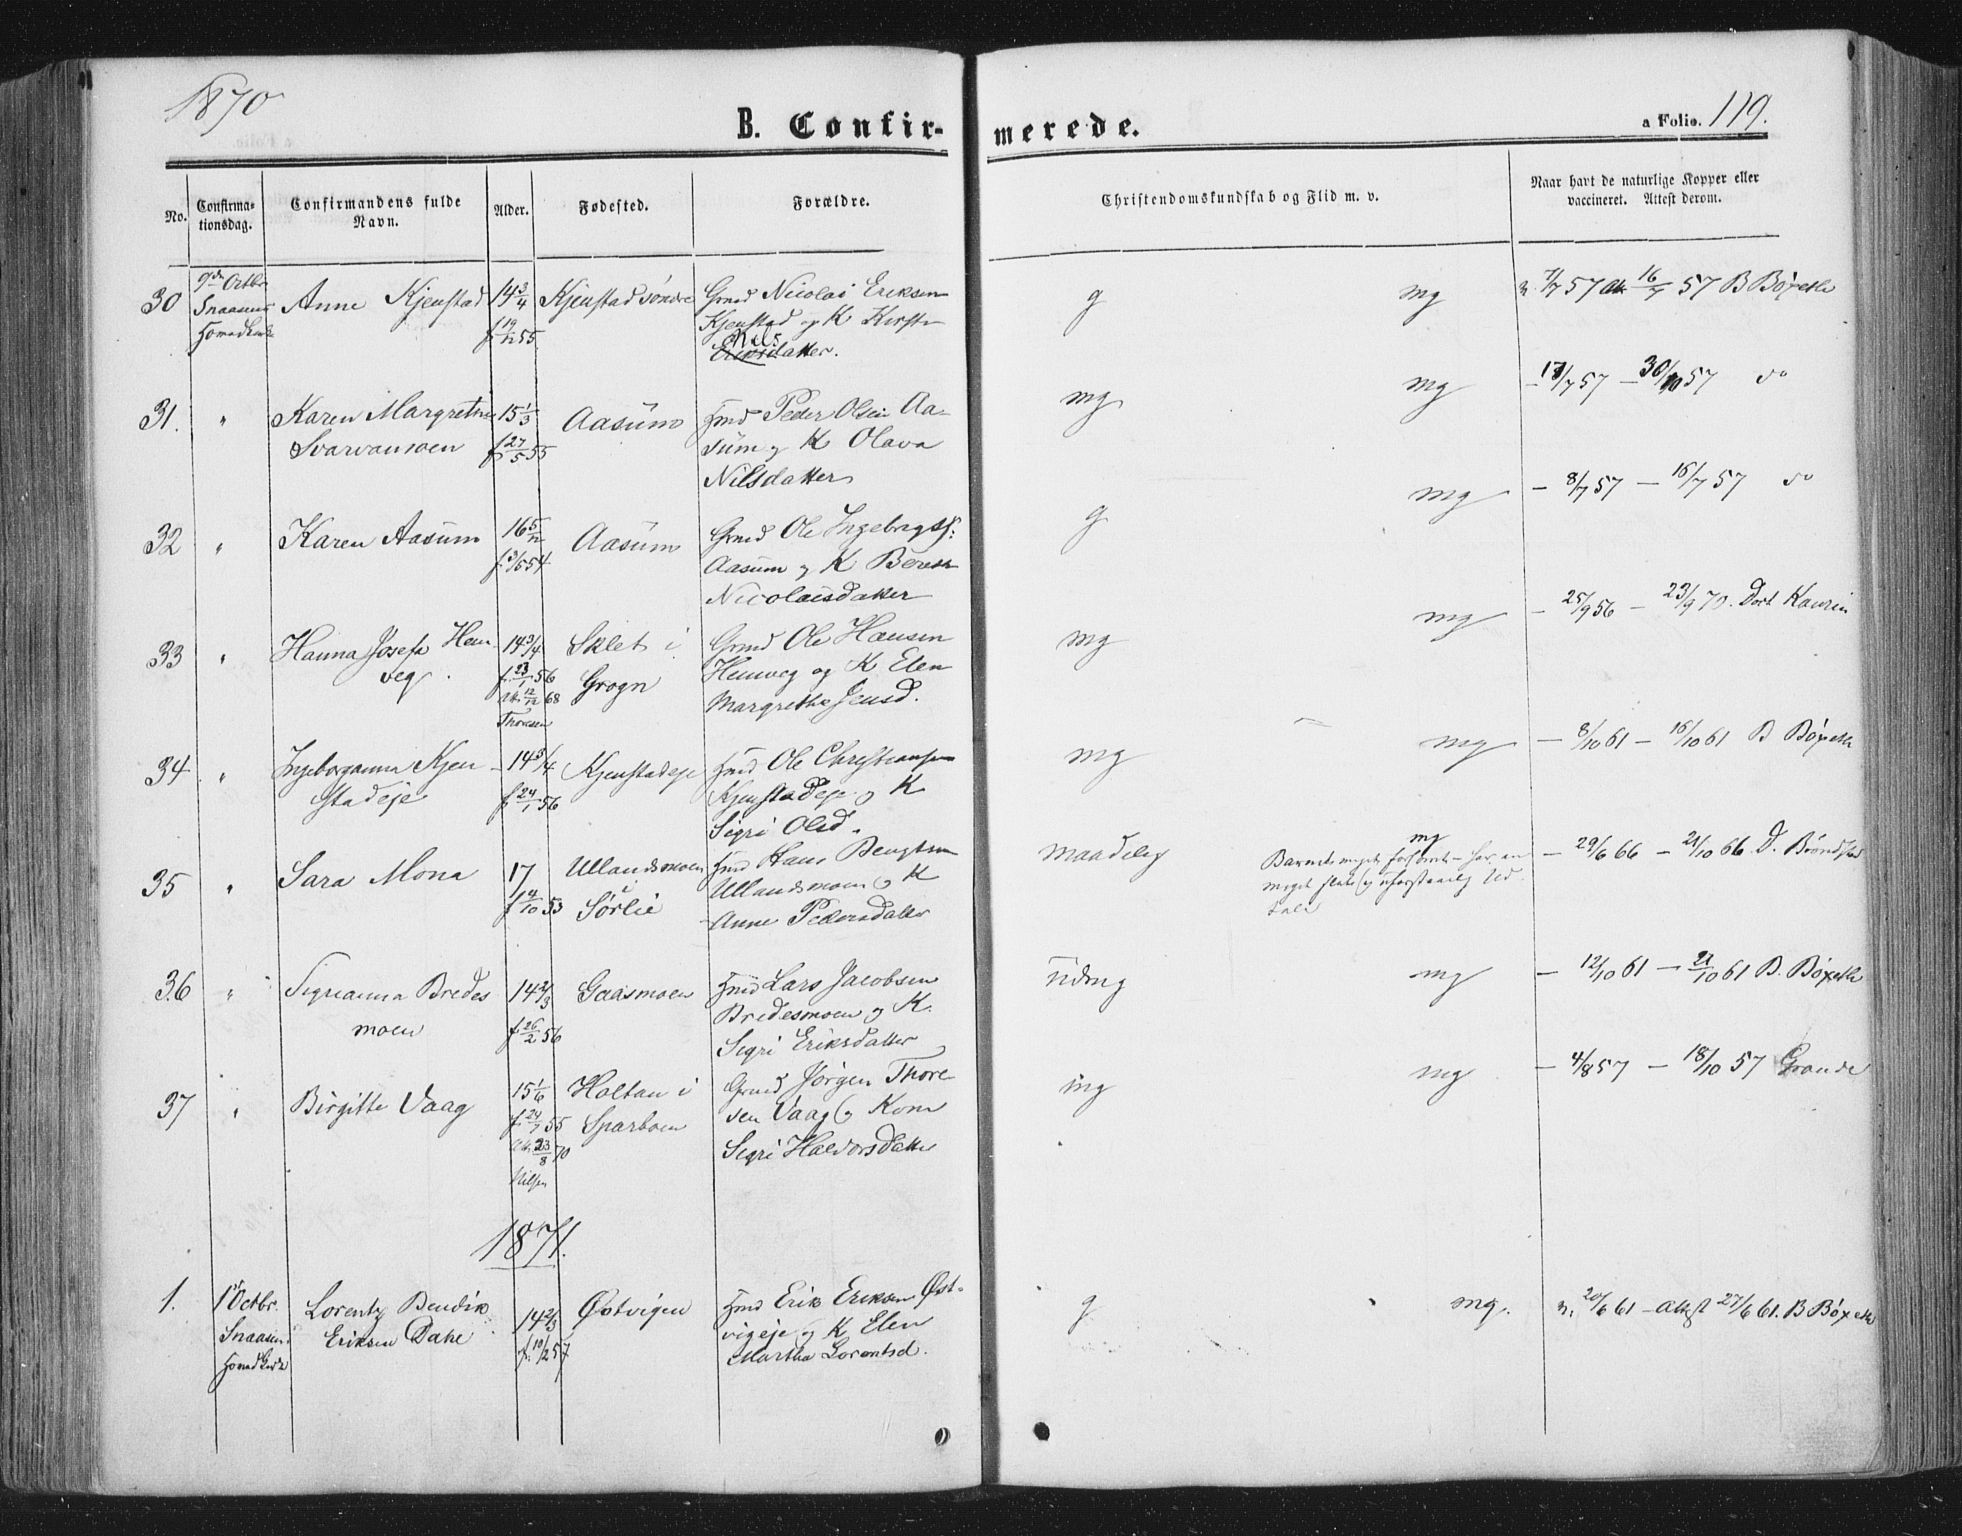 1870
B. Confir-
merede.
a Folio. 119.
No.
Confirma-
tionsdag.
Confirmandens fulde
Navn.
Alder.
Fødested.
Forældre.
Christendomskundskab og Flid m. v.
Naar havt de naturlige Kopper eller
vaccineret. Attest derom.
30 Anne Kjenstad 14 3/4 Kjenstad søndre Grmd Nicolai Eriksen g mg v. 7/7 57 Att 16/7 57 B Bøpeth
9de Octbr
Snaasens
Hovedkirke
f 19/12 55
Kjenstad og K Kirsti
Nils
Eriksdatter.
31. " Karen Margrethe 15 1/3 Aasum Hmd Peder Olsen Aa- mg mg - 17/7 57 - 30/10 57 do
Svarvamoen f 27/5 55 sum og K Olava
Nilsdatter
32 " Karen Aasum 16 5/12 Aasum Grmd Ole Ingebrigts. g mg - 8/7 57 - 16/7 57 do
f. 3/5 54 Aasum og K Bereth
Nicolaisdatter
33 " Hanna Josefa Hem- 14 3/4 Sklet i Grmd Ole Hansen mg mg - 25/9 56 - 23/9 70. Doct Kaurin
veg. f. 23/1 56 Grogn Hemveg og K Elen
Att 12/12 68 Margrethe Jensd.
Thomsen
34 " Ingeborganna Kjen- 14 3/4 Kjenstadeje Hmd Ole Christiansen mg mg - 8/10 61 - 16/10 61 B Bøpeth
stadeje f 24/1 56 Kjenstadeje og K
Sigri Olsd.
35 " Sara Mona 17 Ullandsmoen Hmd Hans Bengtsen maadelig mg - 29/6 66 - 21/10 66 D. Brøndstad
f 4/10 53 i Sørlie Ullandsmoen og K
Anne Pedersdatter
Barnet meget forsømt - har en
meget slet og uforstaaelig Ud-
tale
36 " Sigrianna Bredes- 14 2/3 Gaasmoen Hmd Lars Jacobsen udmg mg - 12/10 61 - 21/10 61 B. Bøpeth
moen f. 26/2 56 Bredesmoen og K.
Sigri Eriksdatter
37 " Birgitte Vaag 15 1/6 Holtan i Grmd Jørgen Thore- mg mg - 4/8 57 - 18/10 57 Grande
f 24/7 55 Sparboen sen Vaag og Kone
Att 23/8 70 Sigri Haldorsdatter
Nilsen
1871.
1. 1ste Octbr. Lorentz Bendik 14 2/3 Østvigen Hmd Erik Eriksen Øst- g mg. v. 20/6 61 - attest 27/6 61. B Bøpeth
Snaasens Eriksen Dahe f. 10/2 57 vigeje og K Elen
Hovedkirke Martha Lorentsd.